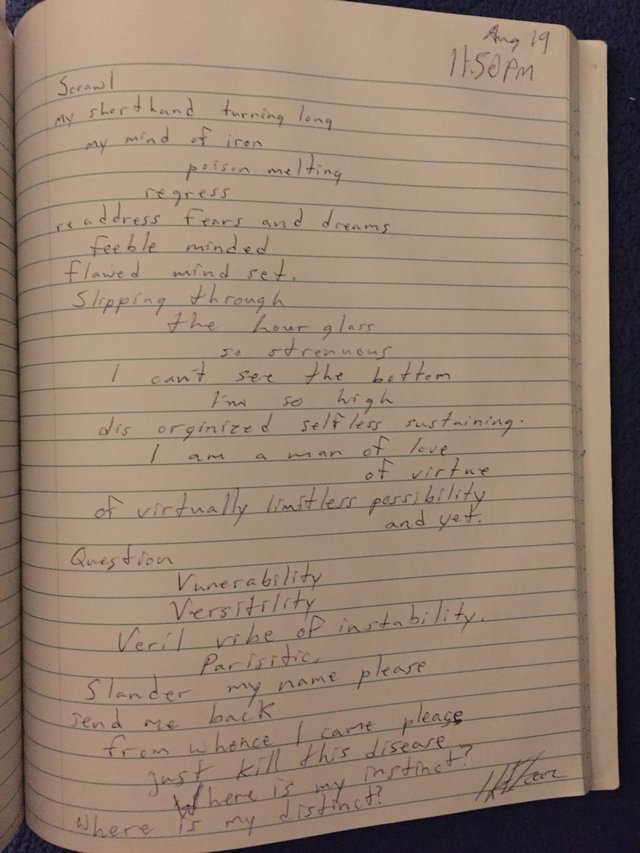 Aug 19
11:50 PM
Scrawl
my shorthand turning long
my mind of iron
poison melting
regress
re address fears and dreams
feeble minded
flawed mind set.
Slipping through
the hour glass
so strenuous
I can't see the bottom
I'm so high
dis orginized selfless sustaining.
I am a man of love
of virtue
of virtually limitless possibility
and yet.
Question
Vunerability
Versitility
Veril vibe of instability.
Parisitic.
Slander my name please
send me back
from whence I came please
just kill this disease
Where is my instinct?
Where is my distinct?